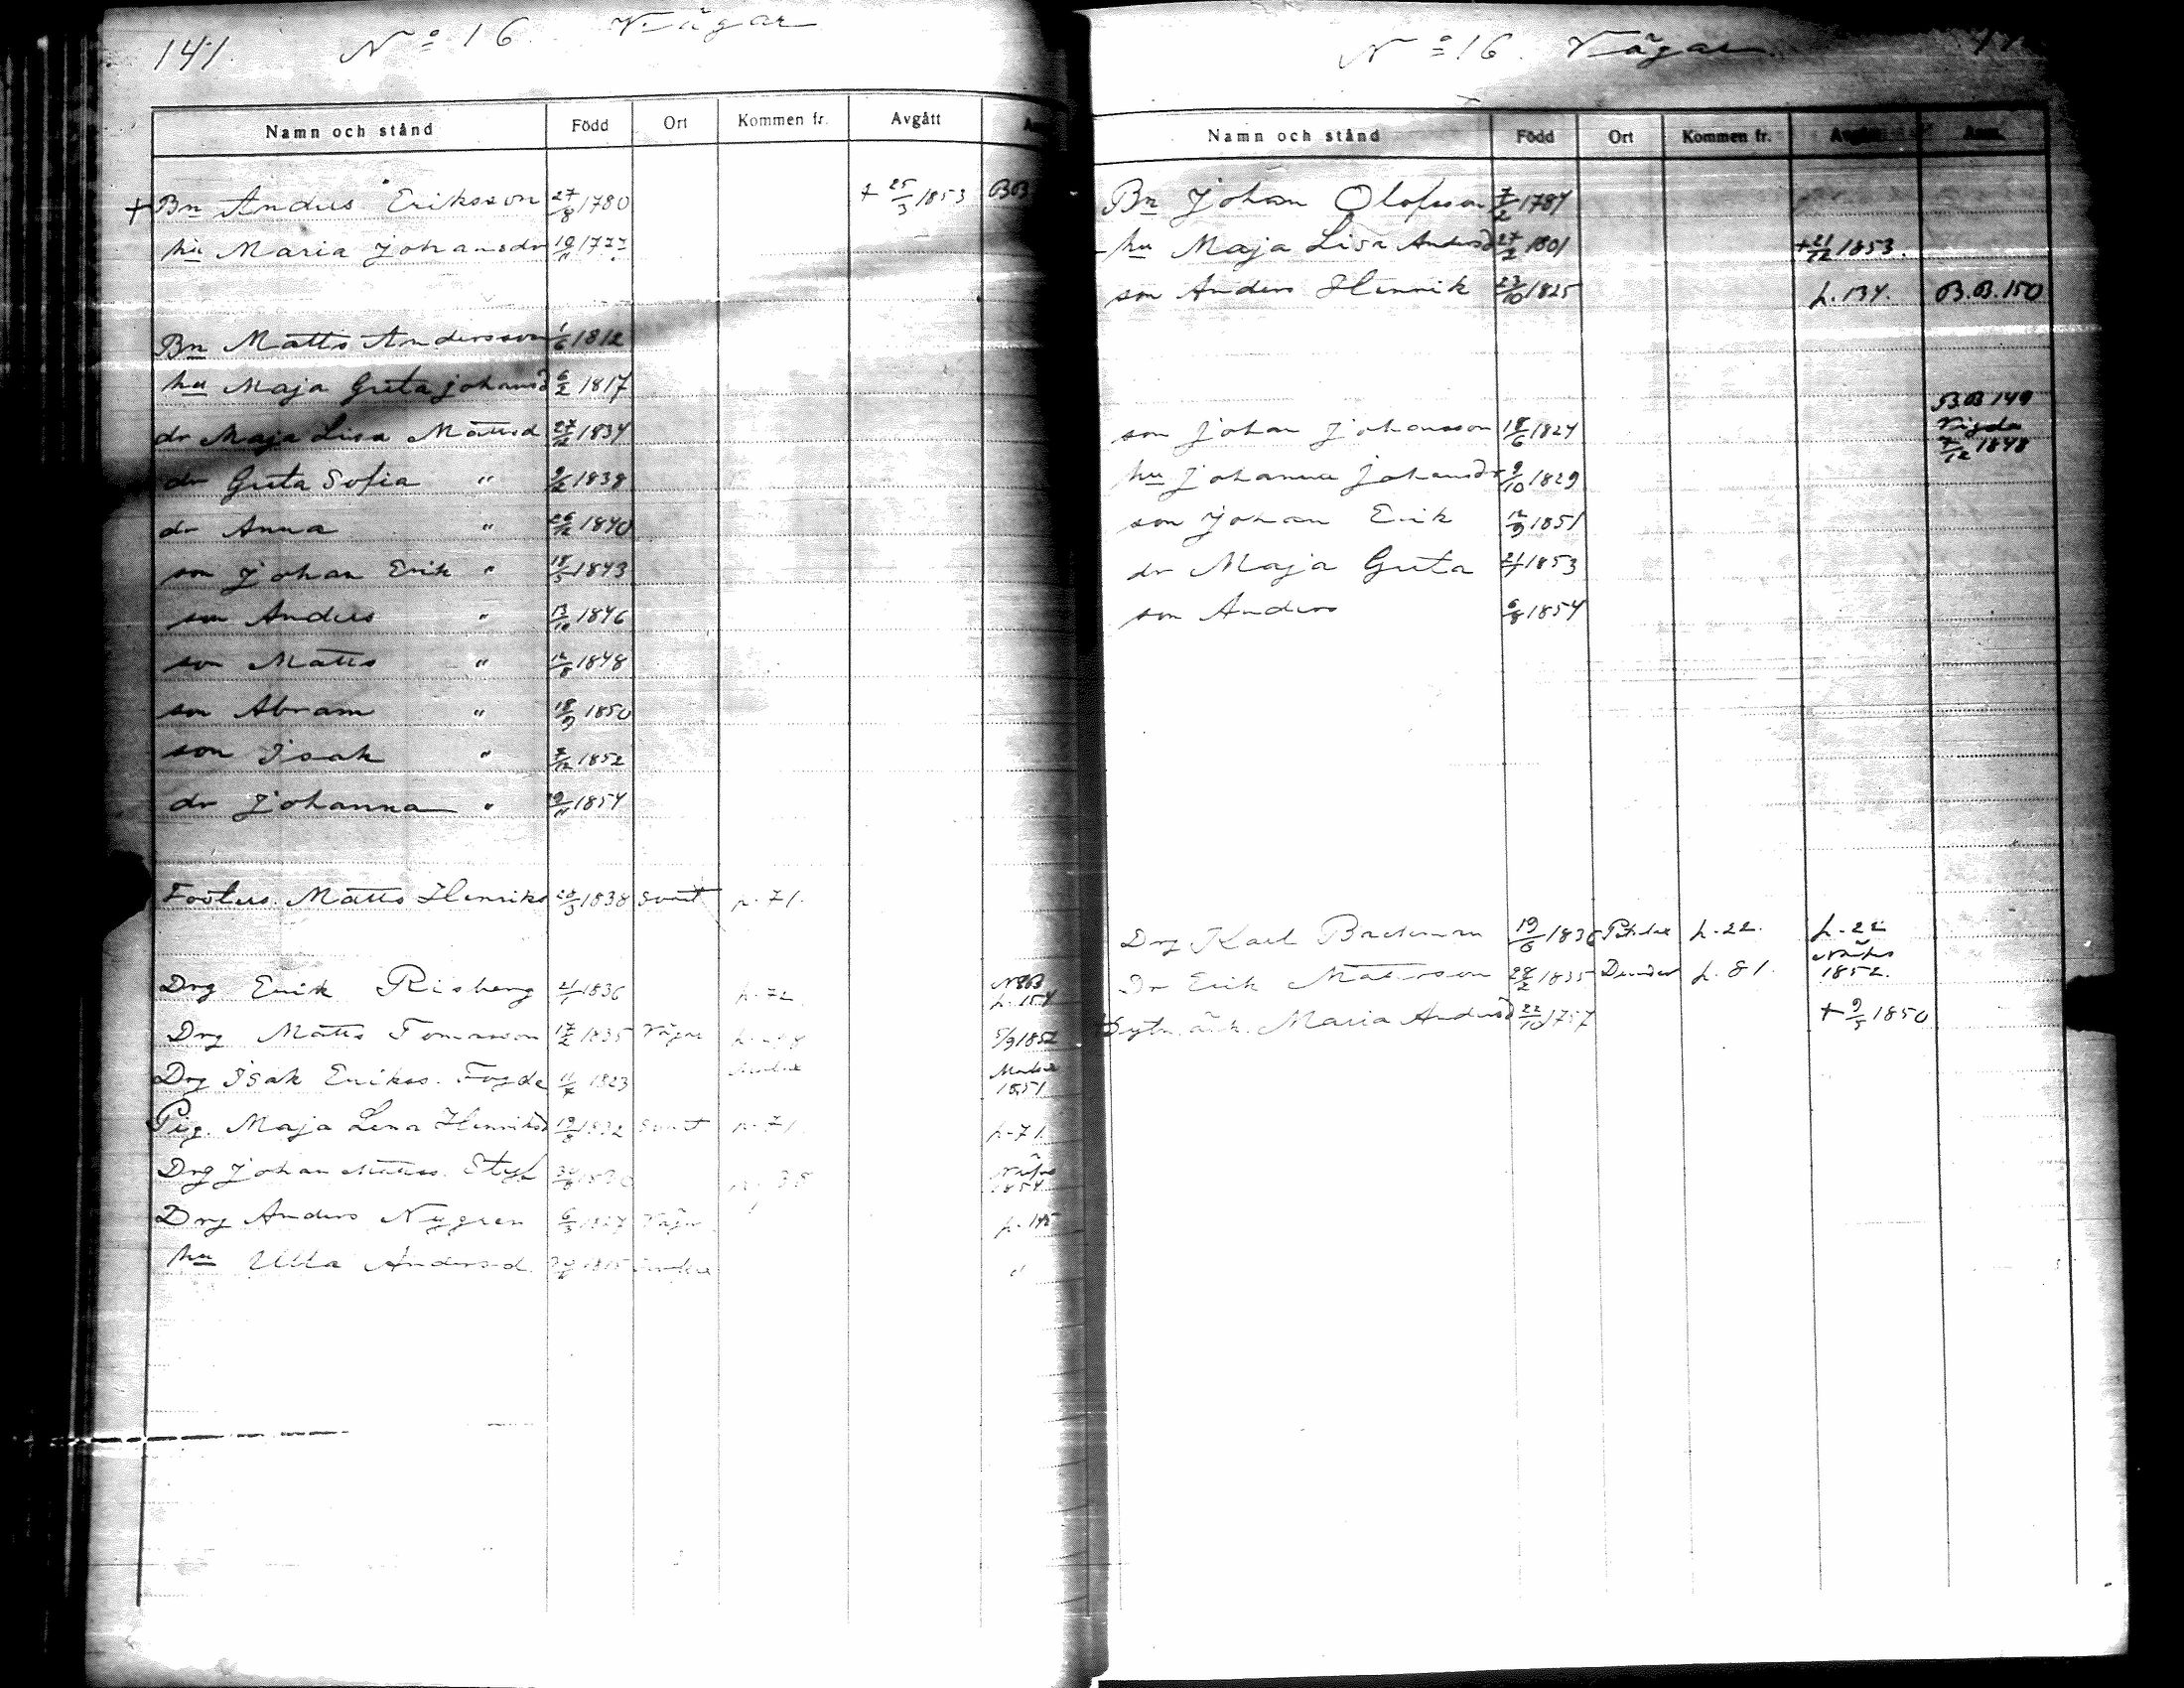 141. No 16. Vägar
Namn och stånd Född Ort Kommen fr. Avgått
+ Bn Anders Eriksson 27/8 1780 + 25/3 1853 BB
hu Maria Johansdr 19/11 1777
Bn Matts Andersson 1/6 1812
hu Maja Greta Johansd 6/2 1817
dr Maja Lisa Mattsd 27/12 1834
dr Greta Sofia " 1838
dr Anna " 26/12 1840
son Johan Erik " 18/5 1843
son Anders " 13/10 1846
son Matts " 12/8 1848
son Abram " 18/9 1850
son Isak " 1852
dr Johanna " 1854
Fosters. Matts Henriks 1838 p. 71.
Drg Erik Risberg 1836 p. 72 p. 154
Drg Matts Tomasson 17/2 1835 Vägar 5/9 1852
Drg Isak Erikss. Fogde 11/7 1823 1851
Pig. Maja Lena Henriksd 1832 p. 71. p. 71.
Drg Johan 1854
Drg Anders Nygren Vägar p. 145
hu Ulla Andersd. 1815 "
No 16. Vägar
Namn och stånd Född Ort Kommen fr. Avgått Anm.
Bn Johan Olofsson 7/2 1784
hu Maja Lisa Andersd 27/2 1801 + 21/12 1853.
son Anders Henrik 23/10 1825 p. 134. B.B. 150
BB 149
son Johan Johansson 18/6 1824 Vigda
7/12 1848
hu Johanna Johansdr 9/10 1829
son Johan Erik 12/9 1851
dr Maja Greta 1853
son Anders 6/8 1854
Drg Karl Backman 19/6 1836 p. 22. p. 22
Dr Erik Mattsson 28/2 1835 p. 81. 1852.
Maria Andersd 22/10 + 9/5 1850